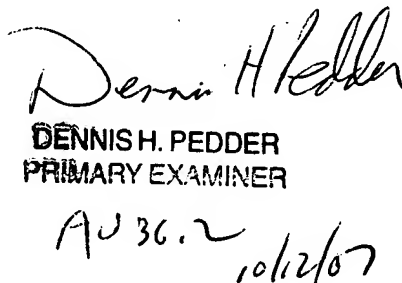 Dennis H Pedder
DENNIS H. PEDDER
PRIMARY EXAMINER
AU 36.2
10/12/07